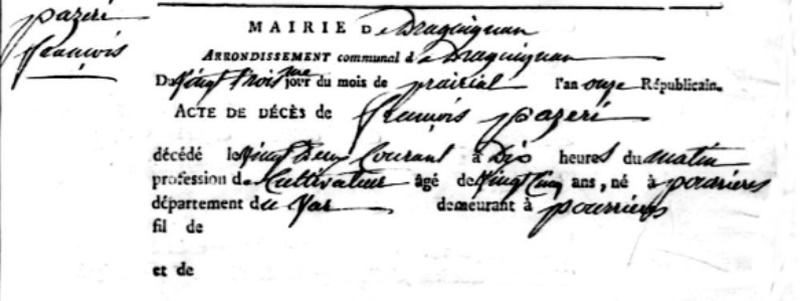 pazeri
françois
MAIRIE De Draguignan
ARRONDISSEMENT communal de Draguignan
Du vingt trois me jour du mois de prairial l'an onze Républicain.
ACTE DE DÉCÈS de françois pazeri
décédé le vingt deux Courant à Dix heures du matin
profession de Cultivateur âgé de vingt Cinq ans, né à pourrieres
département du Var demeurant à pourrieres
fil de
et de